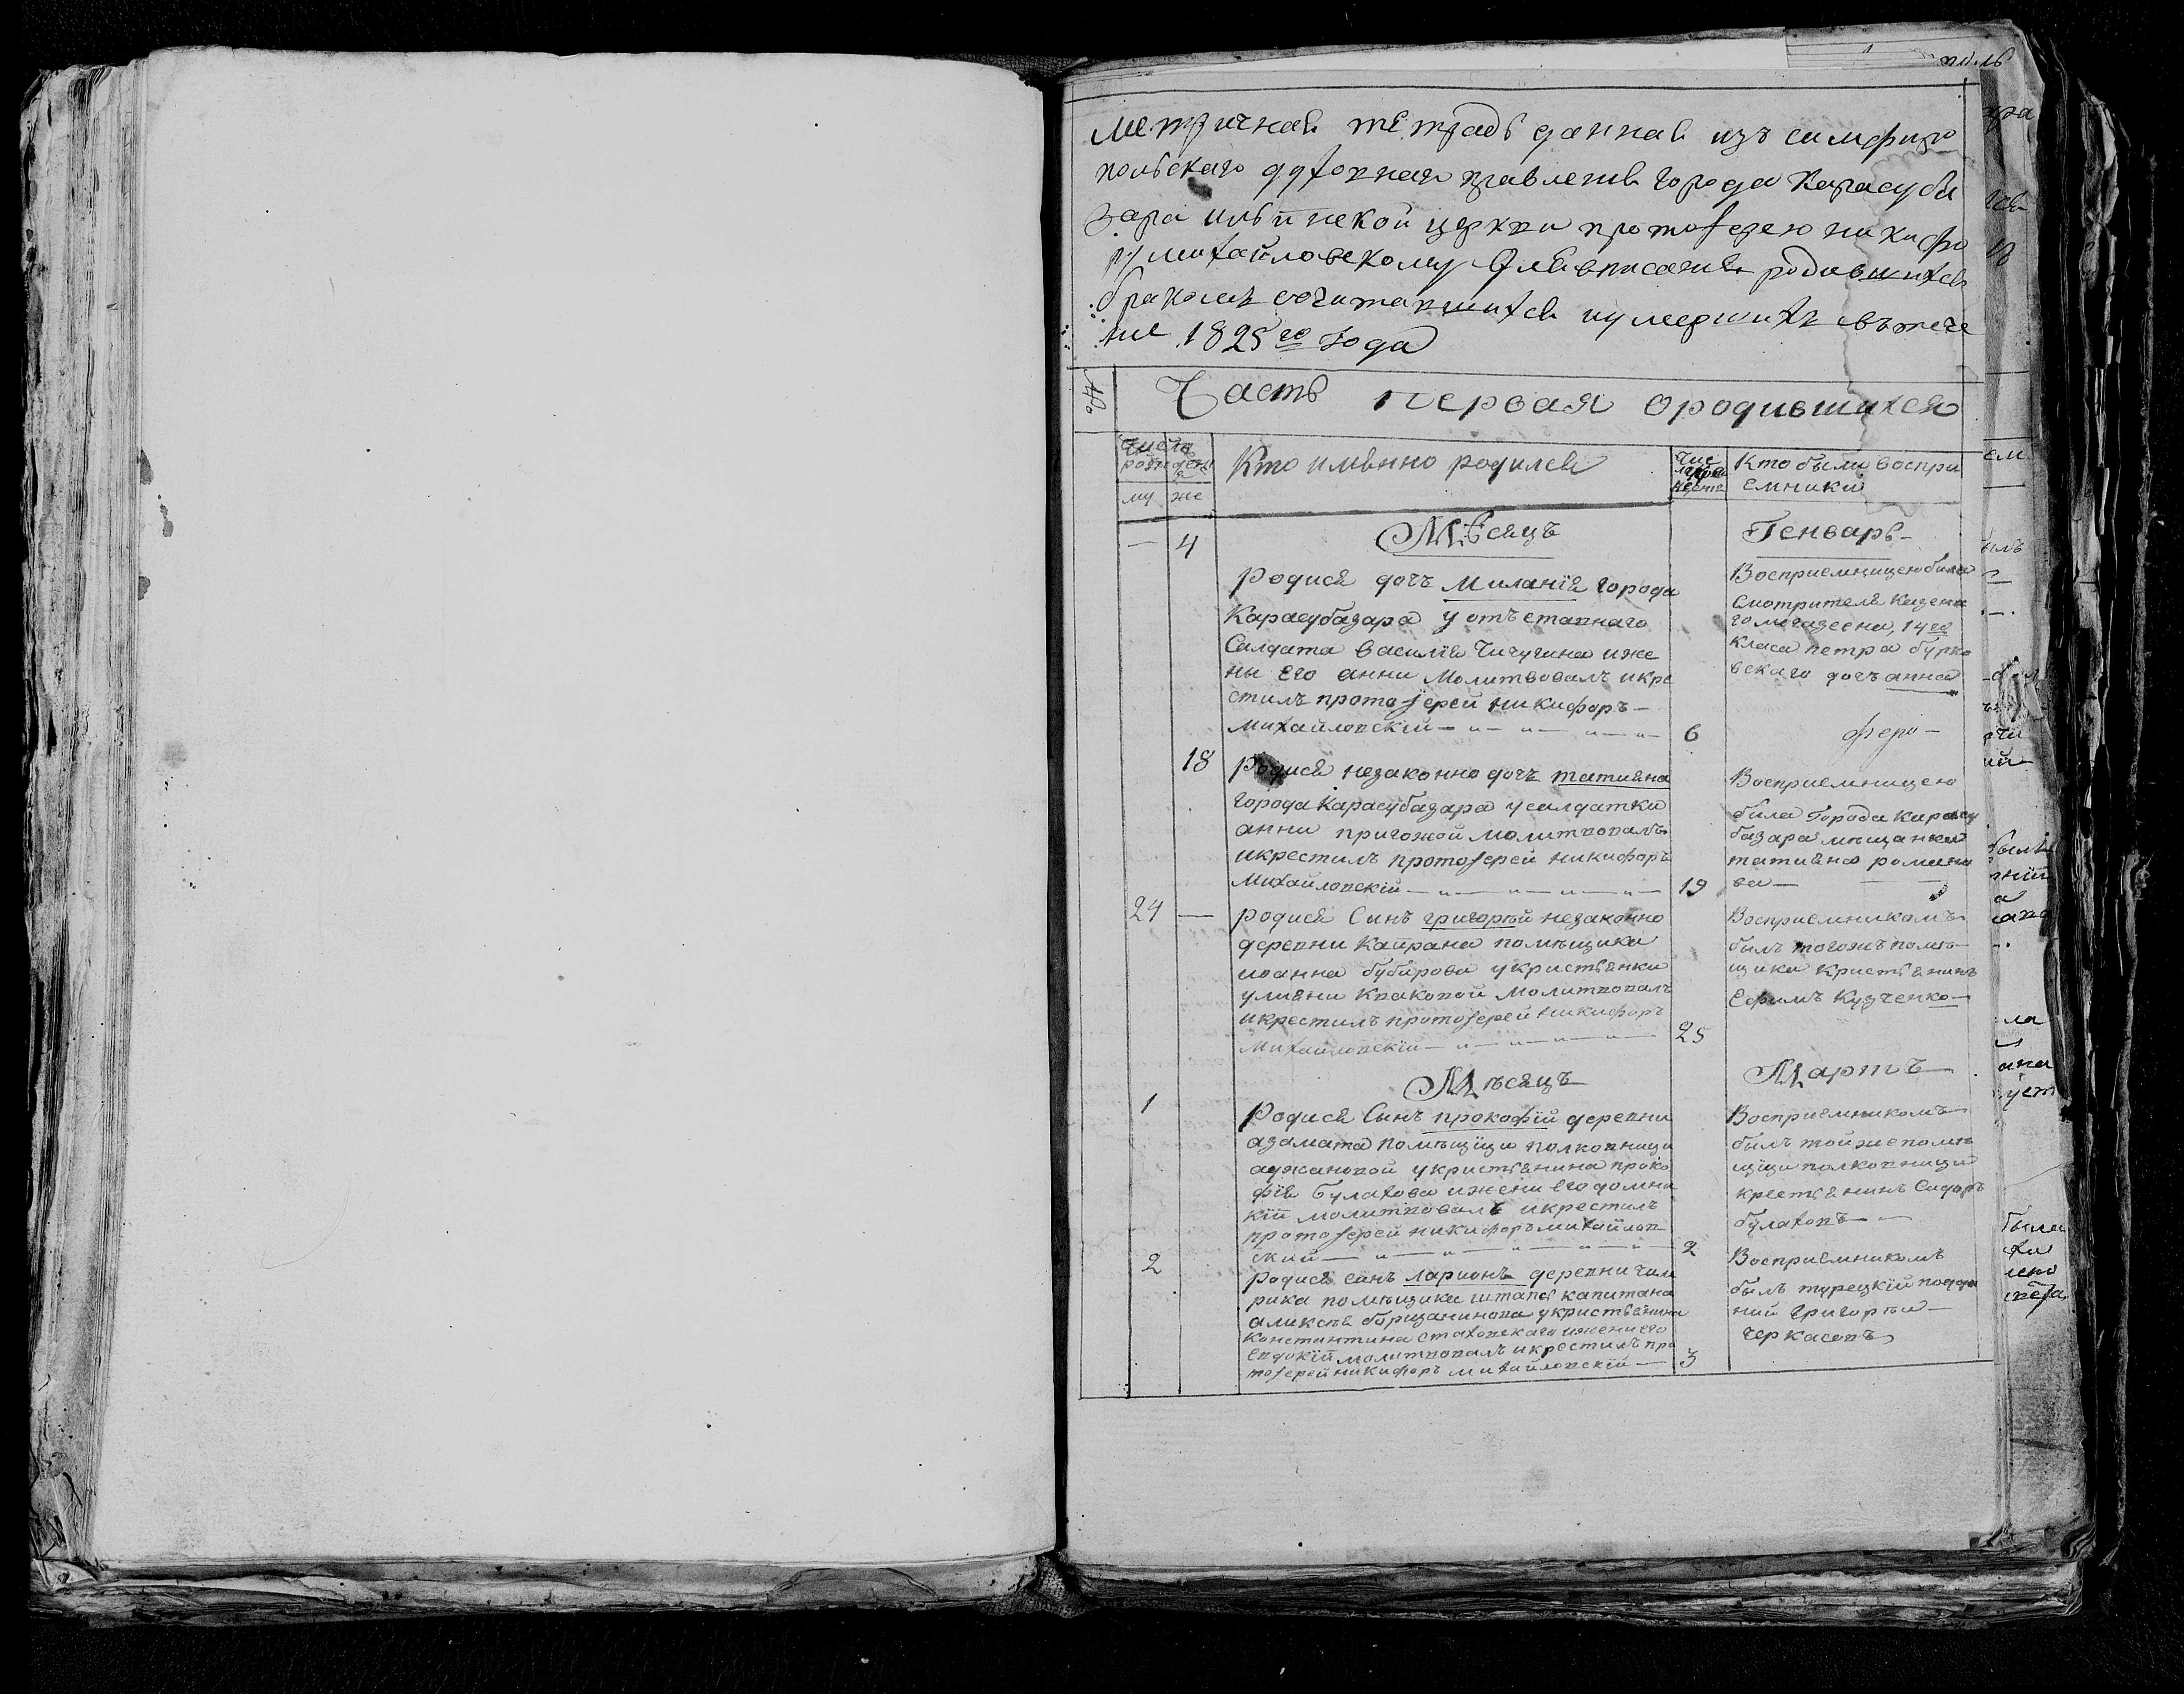 Метричная тетрадь данная изъ симферо
польскаго духовнаго правления города Карасуба
зара ильинской церкви протоіерею никифо
ру михайловскому для вписания родившихся
бракомъ сочитавшихся иумершихъ втече
ние 1825го года
№
Часть первая ородившихся
Число рожден
му же
Кто имянно родился
Чис
ла кре
щения
Кто были воспри
емники
Мѣсяцъ Генварь
4
Родися дочь Миланія города
Карасубазара у отъставнаго
Салдата василія Чичугина иже
ны его анни Молитвовалъ икре
стилъ протоіерей никифоръ
михайловскій
6
Восприемницею била
Смотрителя Казенна
го магазеена, 14го
Класа петра бурко
вскаго дочъ анна
18
Родися незаконно дочъ татияна
города Карасубазара усалдатки
анни пригожой молитвовалъ
икрестилъ протоіерей никифоръ
Михайловскій
19
Восприемницею
била города карасу
базара мещанка
татияна романо
ва
24
родися Синъ григорѣй незаконно
деревни Кайрана помѣщика
иоанна бубирова укристьянки
улияни Кваковой Молитвовалъ
икрестилъ протоіерей никифоръ
Михайловскій
25
Восприемникомъ
былъ тогожъ помѣ
щика Кристьянинъ
Ефимъ Кузченко
Мѣсяцъ Мартъ
1
Родися Синъ прокофій деревни
азамата помѣщици полковници
аджановой укристьянина проко
фія булахова ижени его домни
кій молитвовалъ икрестилъ
протоіерей никифоръ михайлов
ский
2
Восприемникомъ
былъ тойже помѣ
щици полковници
крестьянинъ Сидоръ
булаховъ
2
Родися синъ ларионъ деревни Чим
рика помѣщика штапсъ капитана
аликсѣя борщанинова укристьянина
Константина стаховскаго ижени его
Евдокій молитвовалъ икрестилъ про
тоіерей никифоръ михайловскій
3
Восприемникомъ
былъ турецкій подда
ний григорѣй
черкасовъ